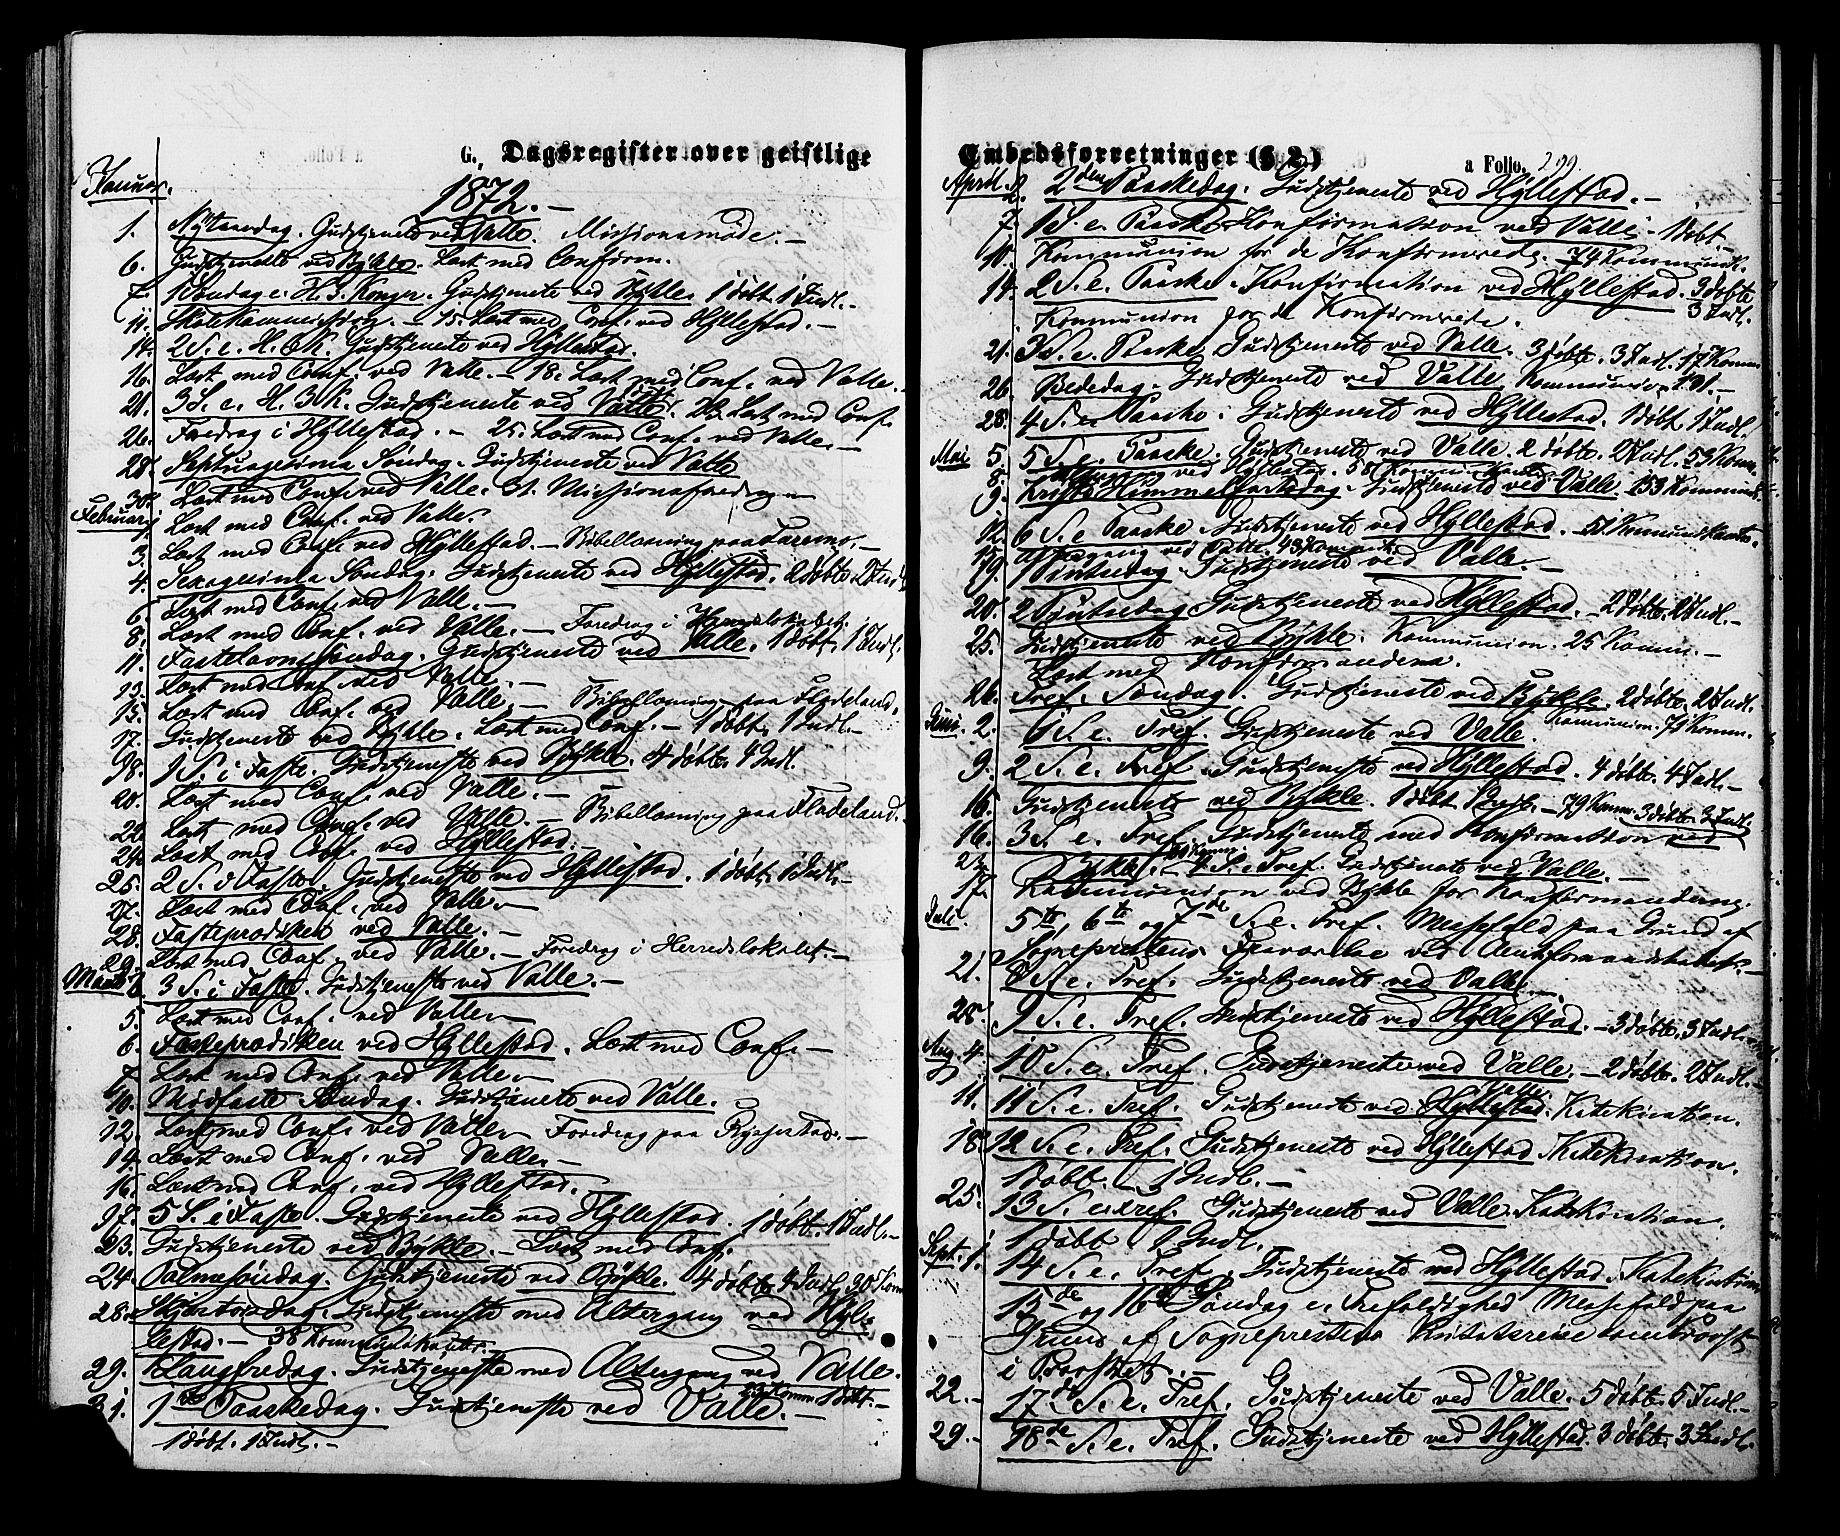 G., Dagsregister over geistlige
1872.-
Januar.
1. Nytaarsdag. Gudstjeneste ved Valle. Missionsmøde.-
6. Gudstjeneste ved Bykle. Læst med Confirm.
7. 1 Søndag e. H. 3. Konger. Gudstjeneste ved Bykle. 1 døbt. 1 Indl.-
11. Skolekommission. - 15. Læst med Conf. ved Hyllestad.-
14. 2 S. e. H. 3 K. Gudstjeneste ved Hyllestad.
16. Læst med Conf. ved Valle.- 18. Læst med Conf. ved Valle.-
21. 3 S. e. H. 3 K. Gudstjeneste ved Valle. 23. Læst med Conf.
26. Foredrag i Hyllestad.- 25. Læst med Conf. ved Valle.-
28. Septuagesima Søndag. Gudstjeneste ved Valle
30. Læst med Conf. ved Valle. 31. Missionsforedrag-
Februar
1 Læst med Conf. ved Valle.
3. Læst med Conf. ved Hyllestad.- Bibellæsning paa
4. Sexagesima Søndag. Gudstjeneste ved Hyllestad. 2 døbte. 2 Indl.
6. Læst med Conf. ved Valle.-
8. Læst med Conf. ved Valle.- Foredrag i Herredslokalet.
11. Fastelavnssøndag. Gudstjeneste ved Valle. 1 døbt. 1 Indl.
13. Læst med Conf. ved Valle.-
15. Læst med Conf. ved Valle.- Bibellæsning paa Fladeland.
17. Gudstjeneste ved Bykle. Læst med Conf.- 1 døbt. 1 Indl.-
18. 1 S. i Faste. Gudstjeneste ved Bykle. 4 døbte. 4 Indl.
20. Læst med Conf. ved Valle.-
22. Læst med Conf. ved Valle.- Bibellæsning paa Fladeland.
24. Læst med Conf. ved Hyllestad.
25. 2 S. i Faste. Gudstjeneste ved Hyllestad. 1 døbt. 1 Indl.-
27. Læst med Conf. ved Valle-
28. Fasteprædiken ved Valle.-
29. Læst med Conf. ved Valle.- Foredrag i Herredslokalet.-
Marts
3 S. i Faste. Gudstjeneste ved Valle.-
5. Læst med Conf. ved Valle-
6. Fasteprædiken ved Hyllestad. Læst med Conf.-
7. Læst med Conf. ved Valle-
10. Midfaste Søndag. Gudstjeneste ved Valle.
12. Læst med Conf. ved Valle- Foredrag paa Rygjestad.-
14. Læst med Conf. ved Valle.-
16. Læst med Conf. ved Hyllestad.
17. 5 S. i Faste. Gudstjeneste ved Hyllestad. 1 døbt. 1 Indl.-
23. Gudstjeneste ved Bykle.- Læst med Conf.
24. Palmesøndag. Gudstjeneste ved Bykle. 4 døbte 4 Indl. 30 Kom
28. Skjærtorsdag. Gudstjeneste med Altergang ved Hyl-
lestad.- 38 Kommunikanter.
29. Langfredag. Gudstjeneste med Altergang ved Valle.
31. 1ste Paaskedag. Gudstjeneste ved Valle.-
1 døbt. 1 Indl.-
Embedsforretninger (§ 2.) a Folio. 299.
April 2. 2den Paaskedag. Gudstjeneste ved Hyllestad.-
7. 1 S. e. Paaske Konfirmation ved Valle- 1 døbt.-
10. Kommunion for de Konfirmerede. 74 Kommunik.
14. 2 S. e. Paaske. Konfirmation ved Hyllestad. 3 døbte
Kommunion for de Konfirmerede. 3 Indl.
21. 3 S. e. Paaske. Gudstjeneste ved Valle. 3 døbte. 3 Indl. 17 Komm
26. Bededag. Gudstjeneste ved Valle Kommunion
28. 4 S. e. Paaske. Gudstjeneste ved Hyllestad. 1 døbt. 1 Indl.
Mai 5. 5 S. e. Paaske. Gudstjeneste ved Valle. 2 døbte. 2 Indl. 53 Kom.
8. Altergang ved Hyllestad. 58 Kommunikanter
9. Kristi Himmelfartsdag. Gudstjeneste ved Valle. 153 Kommunik.
12. 6 S. e. Paaske. Gudstjeneste ved Hyllestad.- 51 Kommunikanter.
Altergang ved Valle. 43 Kommunik.
19. 1 Pintsedag Gudstjeneste ved Valle.-
20. 2 Pintsedag Gudstjeneste ved Hyllestad.- 2 døbte. 2 Indl.-
25. Gudstjeneste ved Bykle. Kommunion. 25 Komm.-
Læst med Konfirmanderne.
26. Tref. Søndag. Gudstjeneste ved Bykle. 2 døbte. 2 Indl.
Kommunion. 71 Komm.
Juni 2. 1 S. e. Tref. Gudstjeneste ved Valle.
9. 2 S. e. Tref. Gudstjeneste ved Hyllestad. 4 døbte. 4 Indl.-
15. Gudstjeneste ved Bykle. 1 døbt. 1 Indl.- 79 Komm. 3 døbte. 3 Indl.
16. 3 S. e. Tref. Gudstjeneste med Konfirmation ved
23. Bykle.- 4 S. e. Tref. Gudstjeneste ved Valle.-
17. Kommunion ved Bykle for Konfirmanderne.
Juli 5te, 6te og 7de S. e. Tref. Messefald paa Grund af
Sognepræstens Fraværelse ved Amtsformandskabet.-
21. 8 S. e. Tref. Gudstjeneste ved Valle.
28. 9 S. e. Tref. Gudstjeneste ved Hyllestad.- 3 døbte. 3 Indl.-
Aug. 4. 10 S. e. Tref. Gudstjeneste ved Valle.- 2 døbte. 2 Indl.-
11. 11 S. e. Tref. Gudstjeneste ved Hyllestad Valle. Katekisation.
18. 12 S. e. Tref. Gudstjeneste ved Hyllestad Katekisation.
1 døbt. 1 Indl.-
25. 13 S. e. Tref. Gudstjeneste ved Valle. Katekisation.
1 døbt 1 Indl.
Sept. 1. 14 S. e. Tref. Gudstjeneste ved Hyllestad. Katekisation
15de og 16de Søndag e. Trefoldighed Messefald paa
Grund af Sognepræstens
22. 17de S. e. Tref. Gudstjeneste ved Valle. 5 døbte. 5 Indl.-
29.- 18de S. e. Tref. Gudstjeneste ved Hyllestad. 3 døbte. 3 Indl.